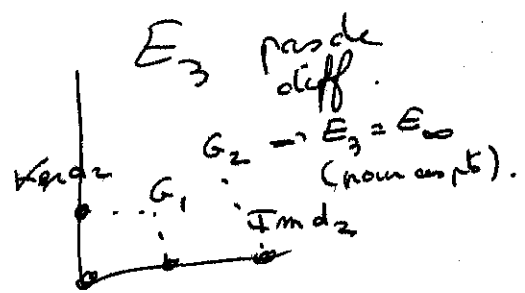 E₃ pas de
diff.
G₂ → E₃ = E∞
(pour ces pts).
Ker d₂
G₁
Im d₂